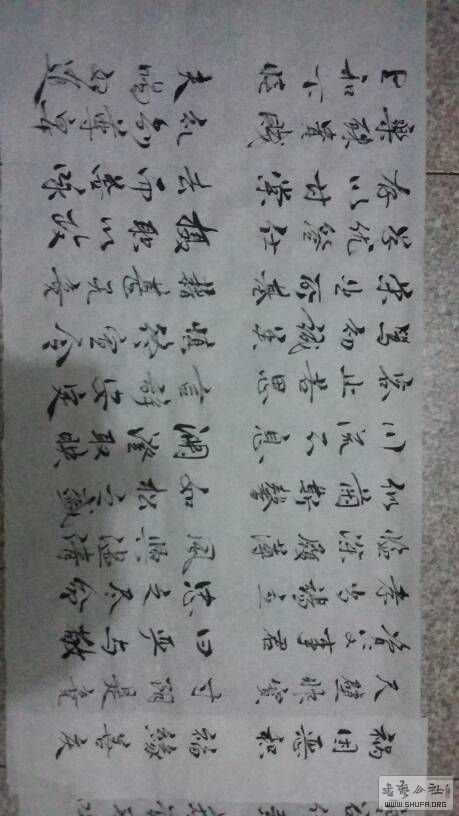 禍因惡積福緣善慶
尺璧非寶寸陰是競
資父事君曰嚴與敬
孝當竭力忠則盡命
臨深履薄夙興溫凊
似蘭斯馨如松之盛
川流不息淵澄取映
容止若思言辭安定
篤初誠美慎終宜令
榮業所基籍甚無竟
學優登仕攝職從政
存以甘棠去而益詠
樂殊貴賤禮別尊卑
上和下睦夫唱婦隨
WWW.SHUFA.ORG